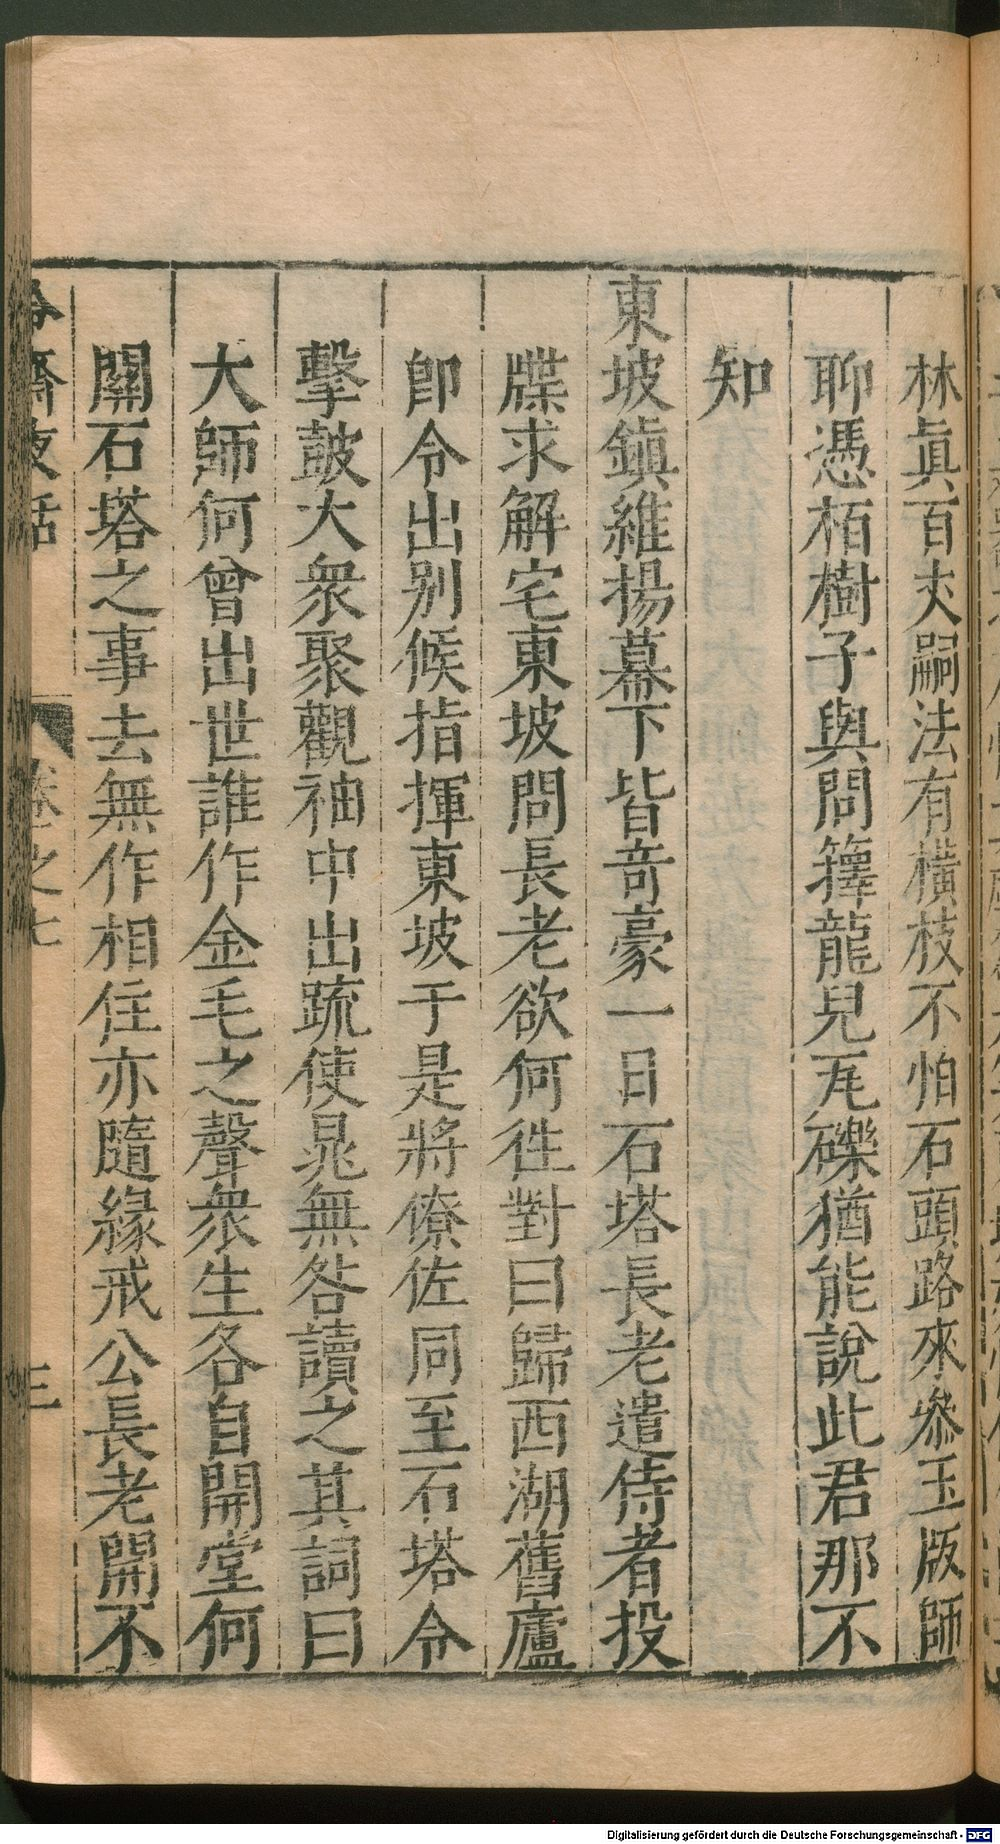 林眞百丈嗣法有橫枝不怕石頭路來叅玉版師
聊憑栢樹子與問籜龍兒瓦礫猶能說此君那不
知
東坡鎭維揚幕下皆竒豪一日石塔長老遣侍者投
牒求解宅東坡問長老欲何徃對曰歸西湖舊廬
卽令出别候指揮東坡于是將僚佐同至石塔令
擊鼓大衆聚觀袖中出疏使晁無咎讀之其詞曰
大師何曾出世誰作金毛之聲衆生各自開堂何
關石塔之事去無作相住亦隨緣戒公長老開不
齋夜話 卷之七 三
Digitalisierung gefördert durch die Deutsche Forschungsgemeinschaft - DFG